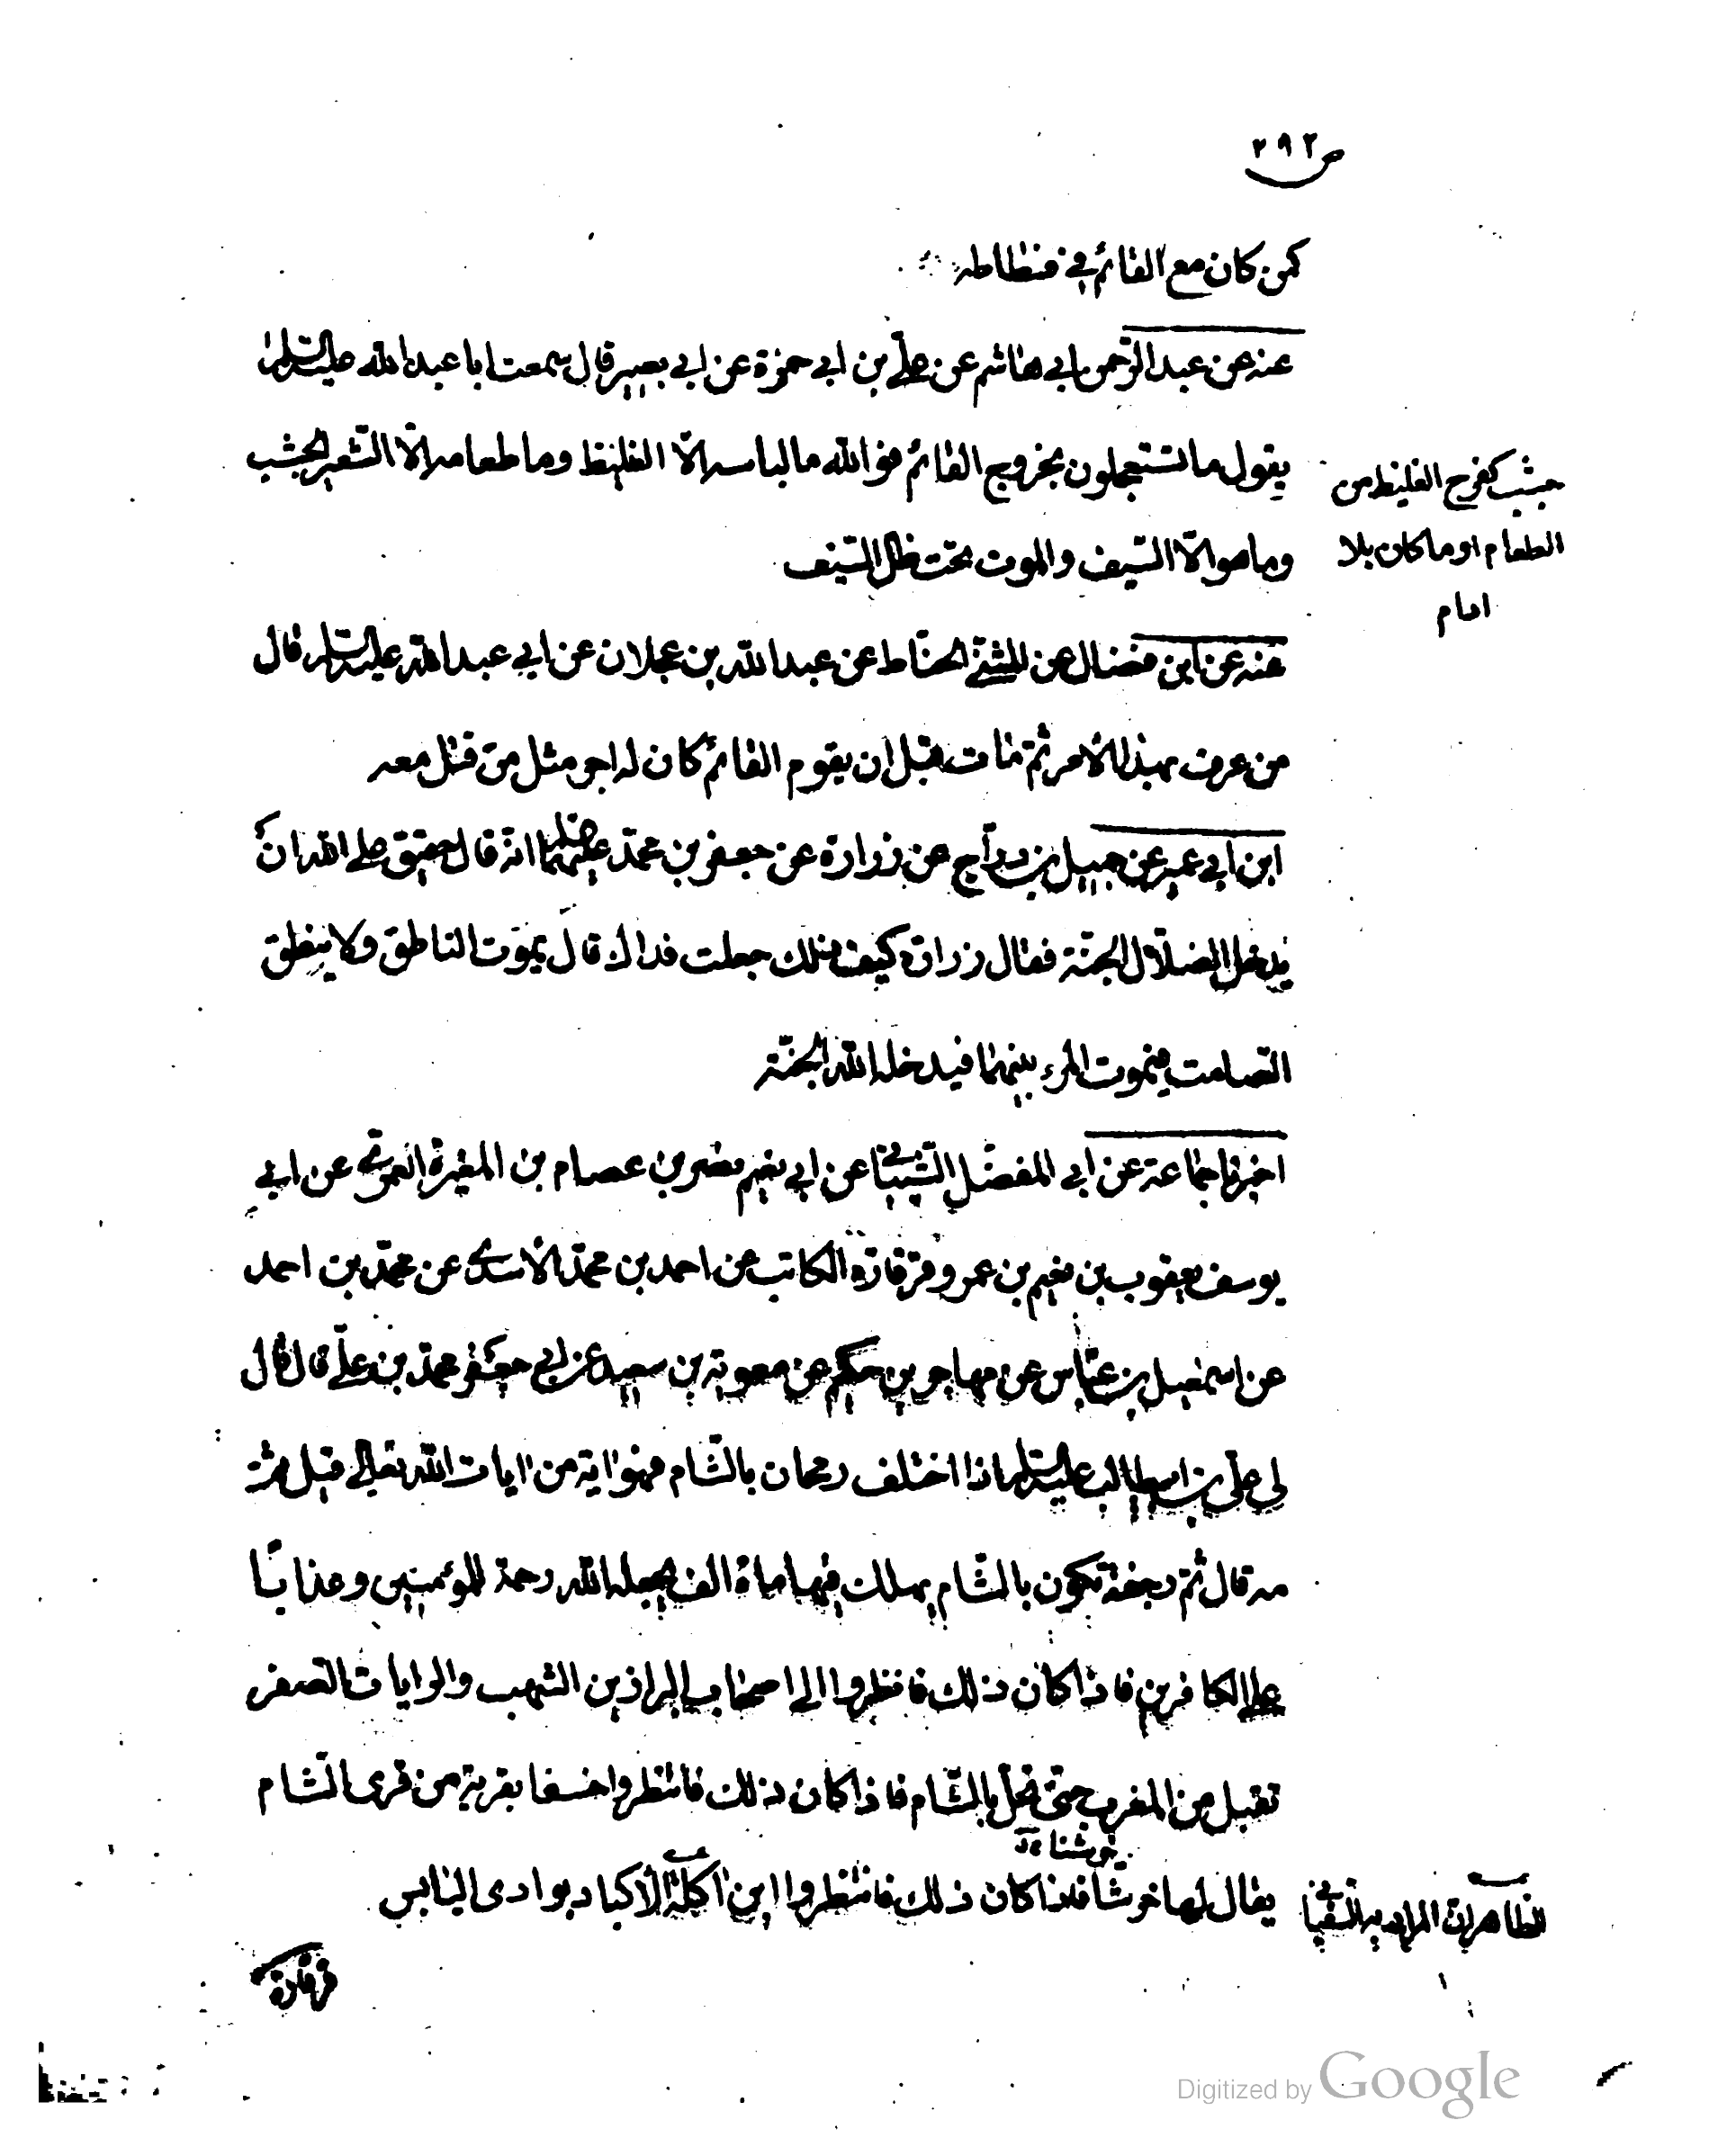 ص ٢٩٢
كمن كان مع القائم في فسطاطه
عنه عن عبد الرحمن ابي هاشم عن علي بن ابي حمزة عن ابي بصير قال سمعت ابا عبد الله عليه السلام
يقول ما تستعجلون بخروج القائم فوالله ما لباسه الا الغليظ وما طعامه الا الشعير الجشب
جشب كفرح الغليظ من
الطعام او ما كان بلا
ادام
وما هو الا السيف والموت تحت ظل السيف
عنه عن ابن فضال عن المثنى الحناط عن عبد الله بن عجلان عن ابي عبد الله عليه السلام قال
من عرف بهذا الامر ثم مات قبل ان يقوم القائم كان له اجر مثل من قتل معه
ابن ابي عمير عن جميل بن دراج عن زرارة عن جعفر بن محمد عليهما انه قال حقيق على الله ان
يدخل الضلال الجنة فقال زرارة كيف ذلك جعلت فداك قال يموت الناطق ولا ينطق
الصامت فيموت المرء بينهما فيدخله الله الجنة
اخبرنا جماعة عن ابي المفضل الشيباني عن ابي نعيم نصر بن عصام بن المغيرة العمري عن ابي
يوسف يعقوب بن نعيم بن عمرو قرقارة الكاتب عن احمد بن محمد الاسدي عن محمد بن احمد
عن اسمعيل بن عياس عن مهاجر بن حكيم عن معوية بن سعيد عن ابي جعفر محمد بن علي قال قال
لي علي بن ابيطالب عليه السلام اذا اختلف رمحان بالشام فهو اية من ايات الله تعالى قيل ثم
مه قال ثم رجفة تكون بالشام يهلك فيها مأة الف يجعله الله رحمة للمؤمنين وعذابًا
على الكافرين فاذا كان ذلك فانظروا الى اصحاب البراذين الشهب والرايات الصفر
تقبل من المغرب حتى تحل بالشام فاذا كان ذلك فانتظروا خسفا بقرية من قرى الشام
خرشنا
يقال لها خرشا فاذا كان ذلك فانتظروا ابن اكلة الاكباد بوادى اليابس
الظاهر ان المراد به السفياني
قرقارة
Digitized by Google